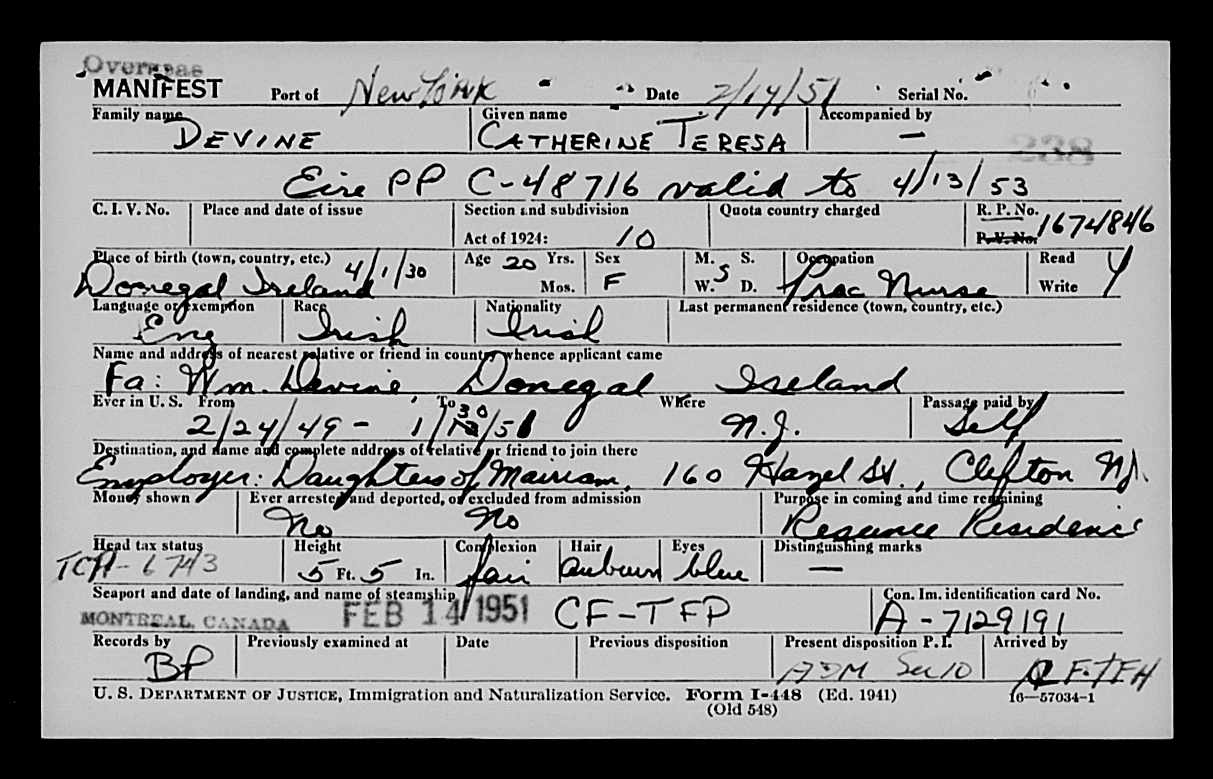 Overseas
MANIFEST Port of New York Date 2/14/51 Serial No.
Family name Given name Accompanied by
DEVINE CATHERINE TERESA —
238
Eire PP C-48716 valid to 4/13/53
C. I. V. No. Place and date of issue Section and subdivision Quota country charged R. P. No.
Act of 1924: 10 P. V. No. 1674846
Place of birth (town, country, etc.) Age 20 Yrs. Sex M. S. Occupation Read
Donegal Ireland 4/1/30 Mos. F W. S D. Prac Nurse Write Y
Language or exemption Race Nationality Last permanent residence (town, country, etc.)
Eng Irish Irish
Name and address of nearest relative or friend in country whence applicant came
Fa: Wm. Devine, Donegal Ireland
Ever in U. S. From To Where Passage paid by
2/24/49 - 1/30/51 N.J. Self
Destination, and name and complete address of relative or friend to join there
Employer: Daughters of Mairiam, 160 Hazel St., Clifton NJ.
Money shown Ever arrested and deported, or excluded from admission Purpose in coming and time remaining
No No Resume Residence
Head tax status Height Complexion Hair Eyes Distinguishing marks
5 Ft. 5 In. fair auburn blue —
Seaport and date of landing, and name of steamship Con. Im. identification card No.
MONTREAL, CANADA FEB 14 1951 CF-TFP A-7129191
Records by Previously examined at Date Previous disposition Present disposition P. I. Arrived by
BP ADM Sec 10
U. S. DEPARTMENT OF JUSTICE, Immigration and Naturalization Service. Form I-448 (Ed. 1941) 16—57034-1
(Old 548)